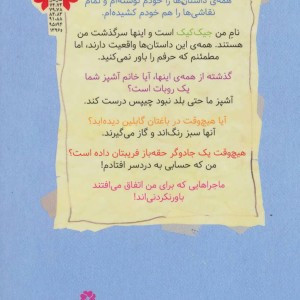 همه‌ی داستان‌ها را خودم نوشته‌ام و تمام
نقاشی‌ها را هم خودم کشیده‌ام.
نام من جیک‌کیک است و اینها سرگذشت من
هستند. همه‌ی این داستان‌ها واقعیت دارند، اما
مطمئنم که حرفم را باور نمی‌کنید.
گذشته از همه‌ی اینها، آیا خانم آشپز شما
یک روبات است؟
آشپز ما حتی بلد نبود چیپس درست کند.
آیا هیچ‌وقت در باغتان گابلین دیده‌اید؟
آنها سبز رنگ‌اند و گاز می‌گیرند.
هیچ‌وقت یک جادوگر حقه‌باز فریبتان داده است؟
من که حسابی به دردسر افتادم!
ماجراهایی که برای من اتفاق می‌افتند
باورنکردنی‌اند!